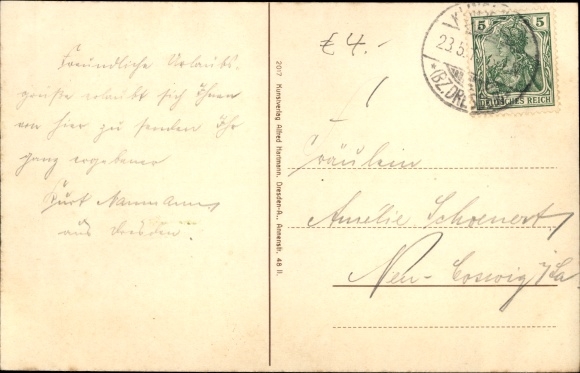 Freundliche Urlaubs-
grüße erlaubt sich Ihnen
von hier zu senden Ihr
ganz ergebener
Kurt Naumann
aus Dresden.
2017 Kunstverlag Alfred Hartmann, Dresden-A., Annenstr. 48 II.
€ 4.-
5 5
DEUTSCHES REICH
23.5.
(BZ. DRESDEN)
Fräulein
Amélie Schoenert
Neu-Coswig i/Sa